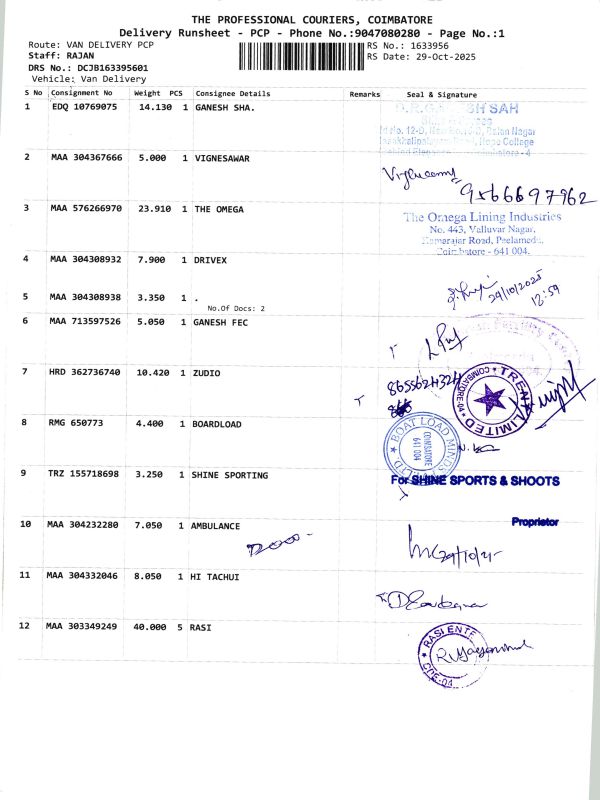 THE PROFESSIONAL COURIERS, COIMBATORE
Delivery Runsheet - PCP - Phone No.:9047080280 - Page No.:1
Route: VAN DELIVERY PCP
RS No.: 1633956
Staff: RAJAN
RS Date: 29-Oct-2025
DRS No.: DCJB163395601
Vehicle: Van Delivery
S No Consignment No Weight PCS Consignee Details Remarks Seal & Signature
1 EDQ 10769075 14.130 1 GANESH SHA.
2 MAA 304367666 5.000 1 VIGNESAWAR
9566697962
3 MAA 576266970 23.910 1 THE OMEGA
The Omega Lining Industries
No. 443, Valluvar Nagar,
Kamarajar Road, Peelamedu,
Coimbatore - 641 004.
4 MAA 304308932 7.900 1 DRIVEX
29/10/2025
5 MAA 304308938 3.350 1 .
No.Of Docs: 2
6 MAA 713597526 5.050 1 GANESH FEC
7 HRD 362736740 10.420 1 ZUDIO
TRENT LIMITED
COIMBATORE-04
8 RMG 650773 4.400 1 BOARDLOAD
BOAT LOAD
COIMBATORE
641 004
9 TRZ 155718698 3.250 1 SHINE SPORTING
For SHINE SPORTS & SHOOTS
Proprietor
10 MAA 304232280 7.050 1 AMBULANCE
11 MAA 304332046 8.050 1 HI TACHUI
12 MAA 303349249 40.000 5 RASI
RASI ENTE